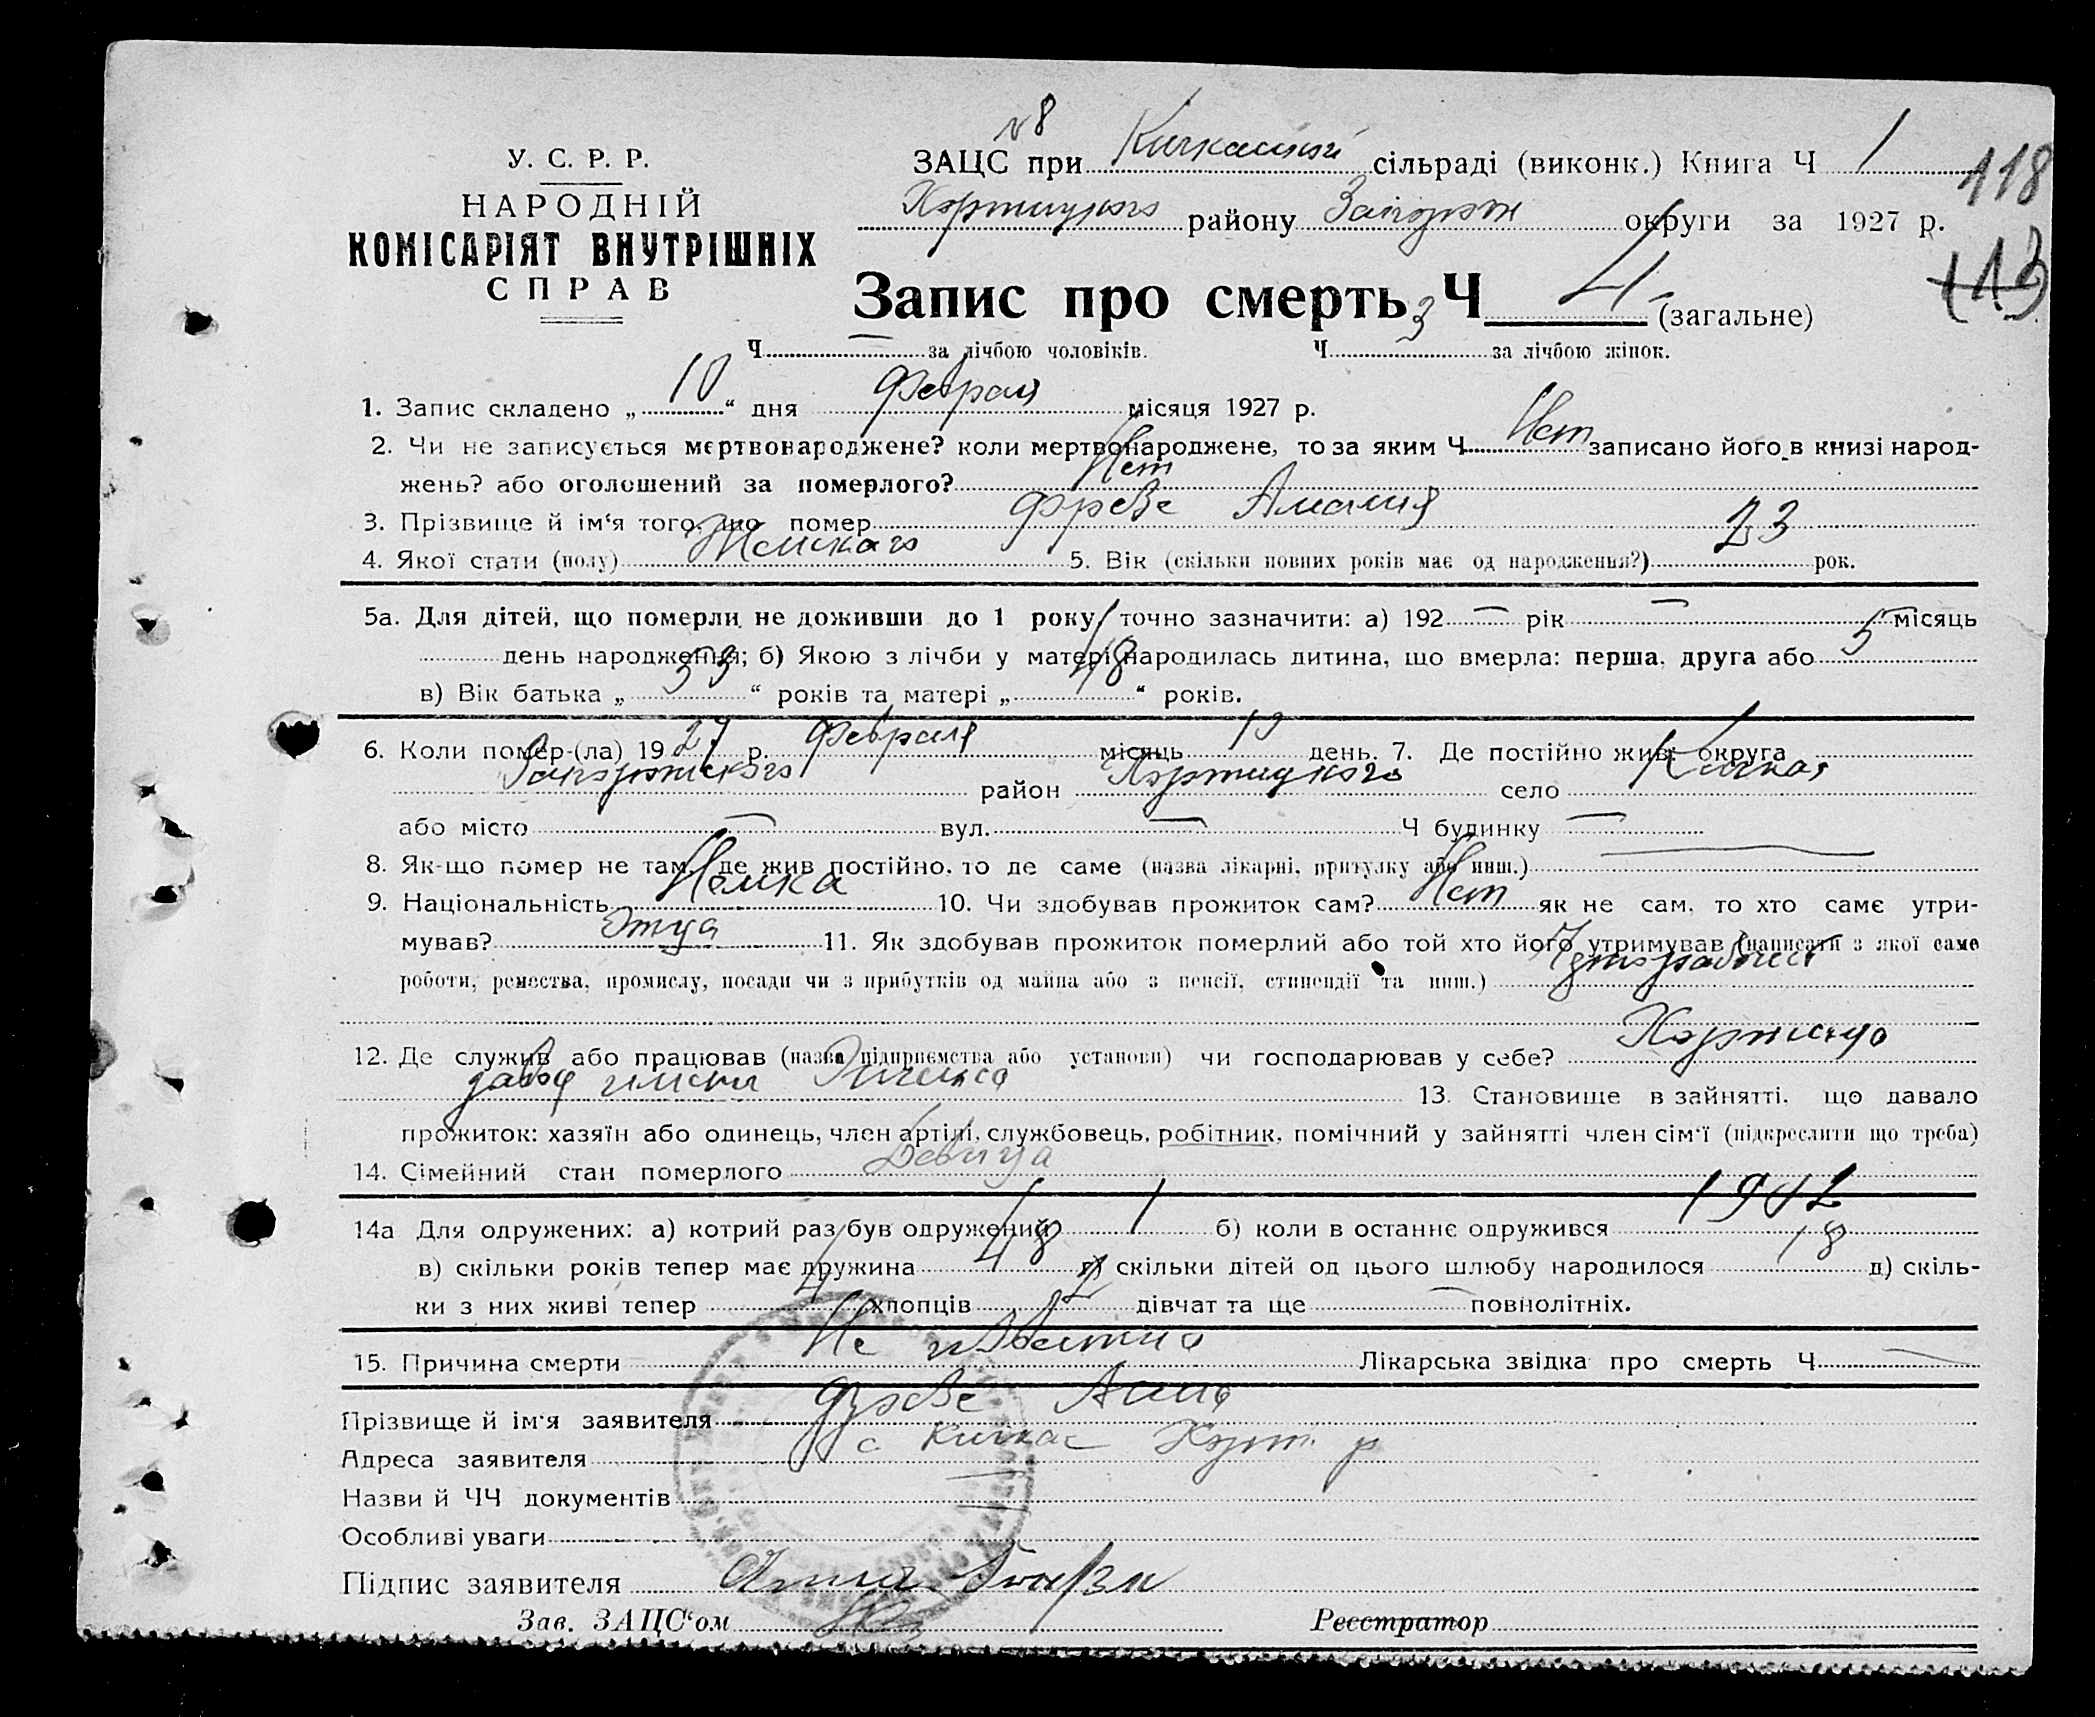 № 8
У. С. Р. Р.
НАРОДНІЙ
КОМІСАРІЯТ ВНУТРІШНІХ
СПРАВ
ЗАЦС при Кичкаський сільраді (виконк.) Книга Ч 1
118
Хортицкого району Запорож округи за 1927 р.
113
Запис про смерть Ч 4 (загальне)
Ч — за лічбою чоловіків. Ч 3 за лічбою жінок.
1. Запис складено „ 10 “ дня Февраля місяця 1927 р.
2. Чи не записується мертвонароджене? коли мертвонароджене, то за яким Ч Нет записано його в книзі народ-
жень? або оголошений за померлого? Нет
3. Прізвище й ім‘я того, що помер Фрезе Амалия
4. Якої стати (полу) Женскаго 5. Вік (скільки повних років має од народження?) 23 рок.
5а. Для дітей, що померли не доживши до 1 року, точно зазначити: а) 192 — рік — місяць
день народження; б) Якою з лічби у матері народилась дитина, що вмерла: перша, друга або 5
в) Вік батька „ 53 “ років та матері „ 48 “ років.
6. Коли помер-(ла) 1927 р. Февраля місяць 10 день. 7. Де постійно жив: округа
Запорожского район Хортицкого село Кичкас
або місто — вул. — Ч будинку —
8. Як-що помер не там, де жив постійно, то де саме (назва лікарні, притулку або инш.) —
9. Національність Немка 10. Чи здобував прожиток сам? Нет як не сам, то хто саме утри-
мував? Отца 11. Як здобував прожиток померлий або той хто його утримував (написати з якої саме
роботи, ремества, промислу, посади чи з прибутків од майна або з пенсії, стипендії та инш.)
12. Де служив або працював (назва підприємства або установи) чи господарював у себе? Хортица
завод имени Энгельса 13. Становище в зайнятті, що давало
прожиток: хазяїн або одинець, член артілі, службовець, робітник, помічний у зайнятті член сім‘ї (підкреслити що треба)
14. Сімейний стан померлого Девица
14а Для одружених: а) котрий раз був одружений 1 б) коли в останнє одружився
в) скільки років тепер має дружина 48 г) скільки дітей од цього шлюбу народилося 8 д) скіль-
ки з них живі тепер 4 хлопців 2 дівчат та ще — повнолітніх.
15. Причина смерти Не известно Лікарська звідка про смерть Ч —
Прізвище й ім‘я заявителя Фрезе Анна
Адреса заявителя с Кичкас Хорт. р
Назви й ЧЧ документів —
Особливі уваги —
Підпис заявителя
Зав. ЗАЦС‘ом Реєстратор